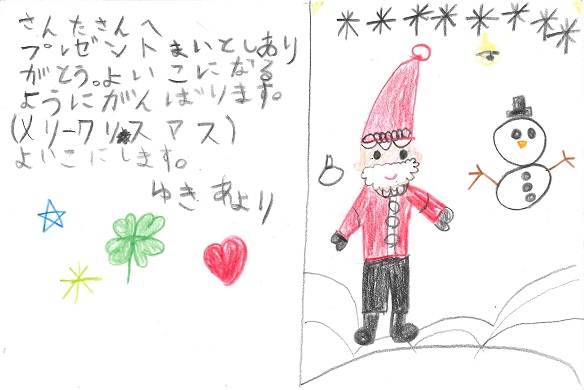 さんたさんへ
プレゼントまいとしあり
がとう。よいこになる
ようにがんばります。
(メリークリスマス)
よいこにします。
ゆきあより